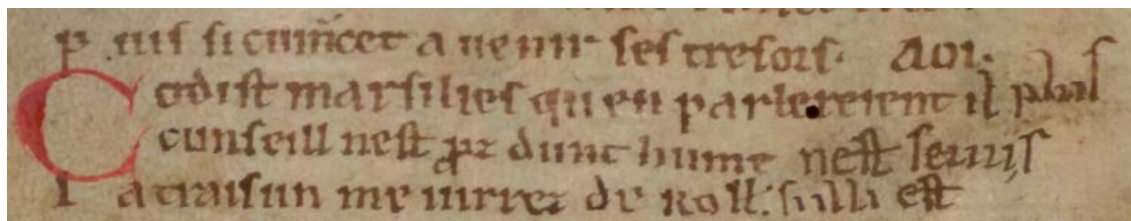 P uis si cum̄cet a uenir ses tresors. Aoi.
C odist marsilies quen parlereient il plus
cunseill nest ꝓz dunc hume nest
L a traisun me iurrez de Roll. silli est